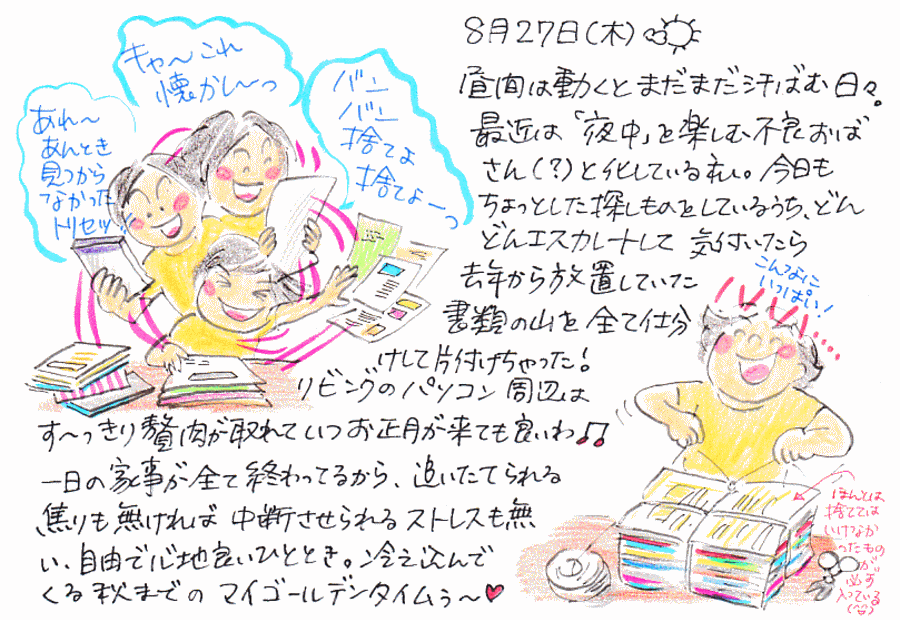 8月27日(木)
昼間は動くとまだまだ汗ばむ日々。
最近は「夜中」を楽しむ不良おば
さん(?)と化しているわい。今日も
ちょっとした探しものをしているうち、どん
どんエスカレートして 気付いたら
去年から放置していた
書類の山を全て仕分
けして片付けちゃった!
リビングのパソコン周辺は
す〜っきり贅肉が取れていつお正月が来ても良いわ♫
一日の家事が全て終わってるから、追いたてられる
焦りも無ければ 中断させられるストレスも無
い、自由で心地良いひととき。冷え込んで
くる秋までの マイゴールデンタイムぅ〜♥
あれ〜
あんとき
見つから
なかった
トリセツ!!
キャ〜これ
懐かし〜っ
バン
バン
捨てよ
捨てよーっ
こんなに
いっぱい!
ほんとは
捨てては
いけなか
ったもの
が
必ず
入っている